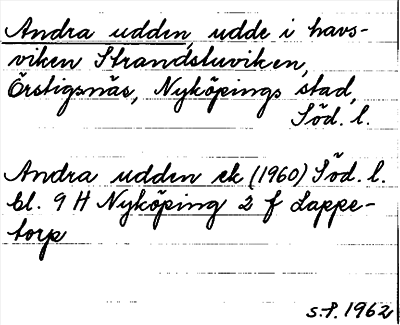 Andra udden, udde i havs-
viken Strandstuviken,
Örstigsnäs, Nyköpings stad,
Söd. l.
Andra udden ek (1960) Söd. l.
bl. 9 H Nyköping 2 f Lappe-
torp
S.P. 1962